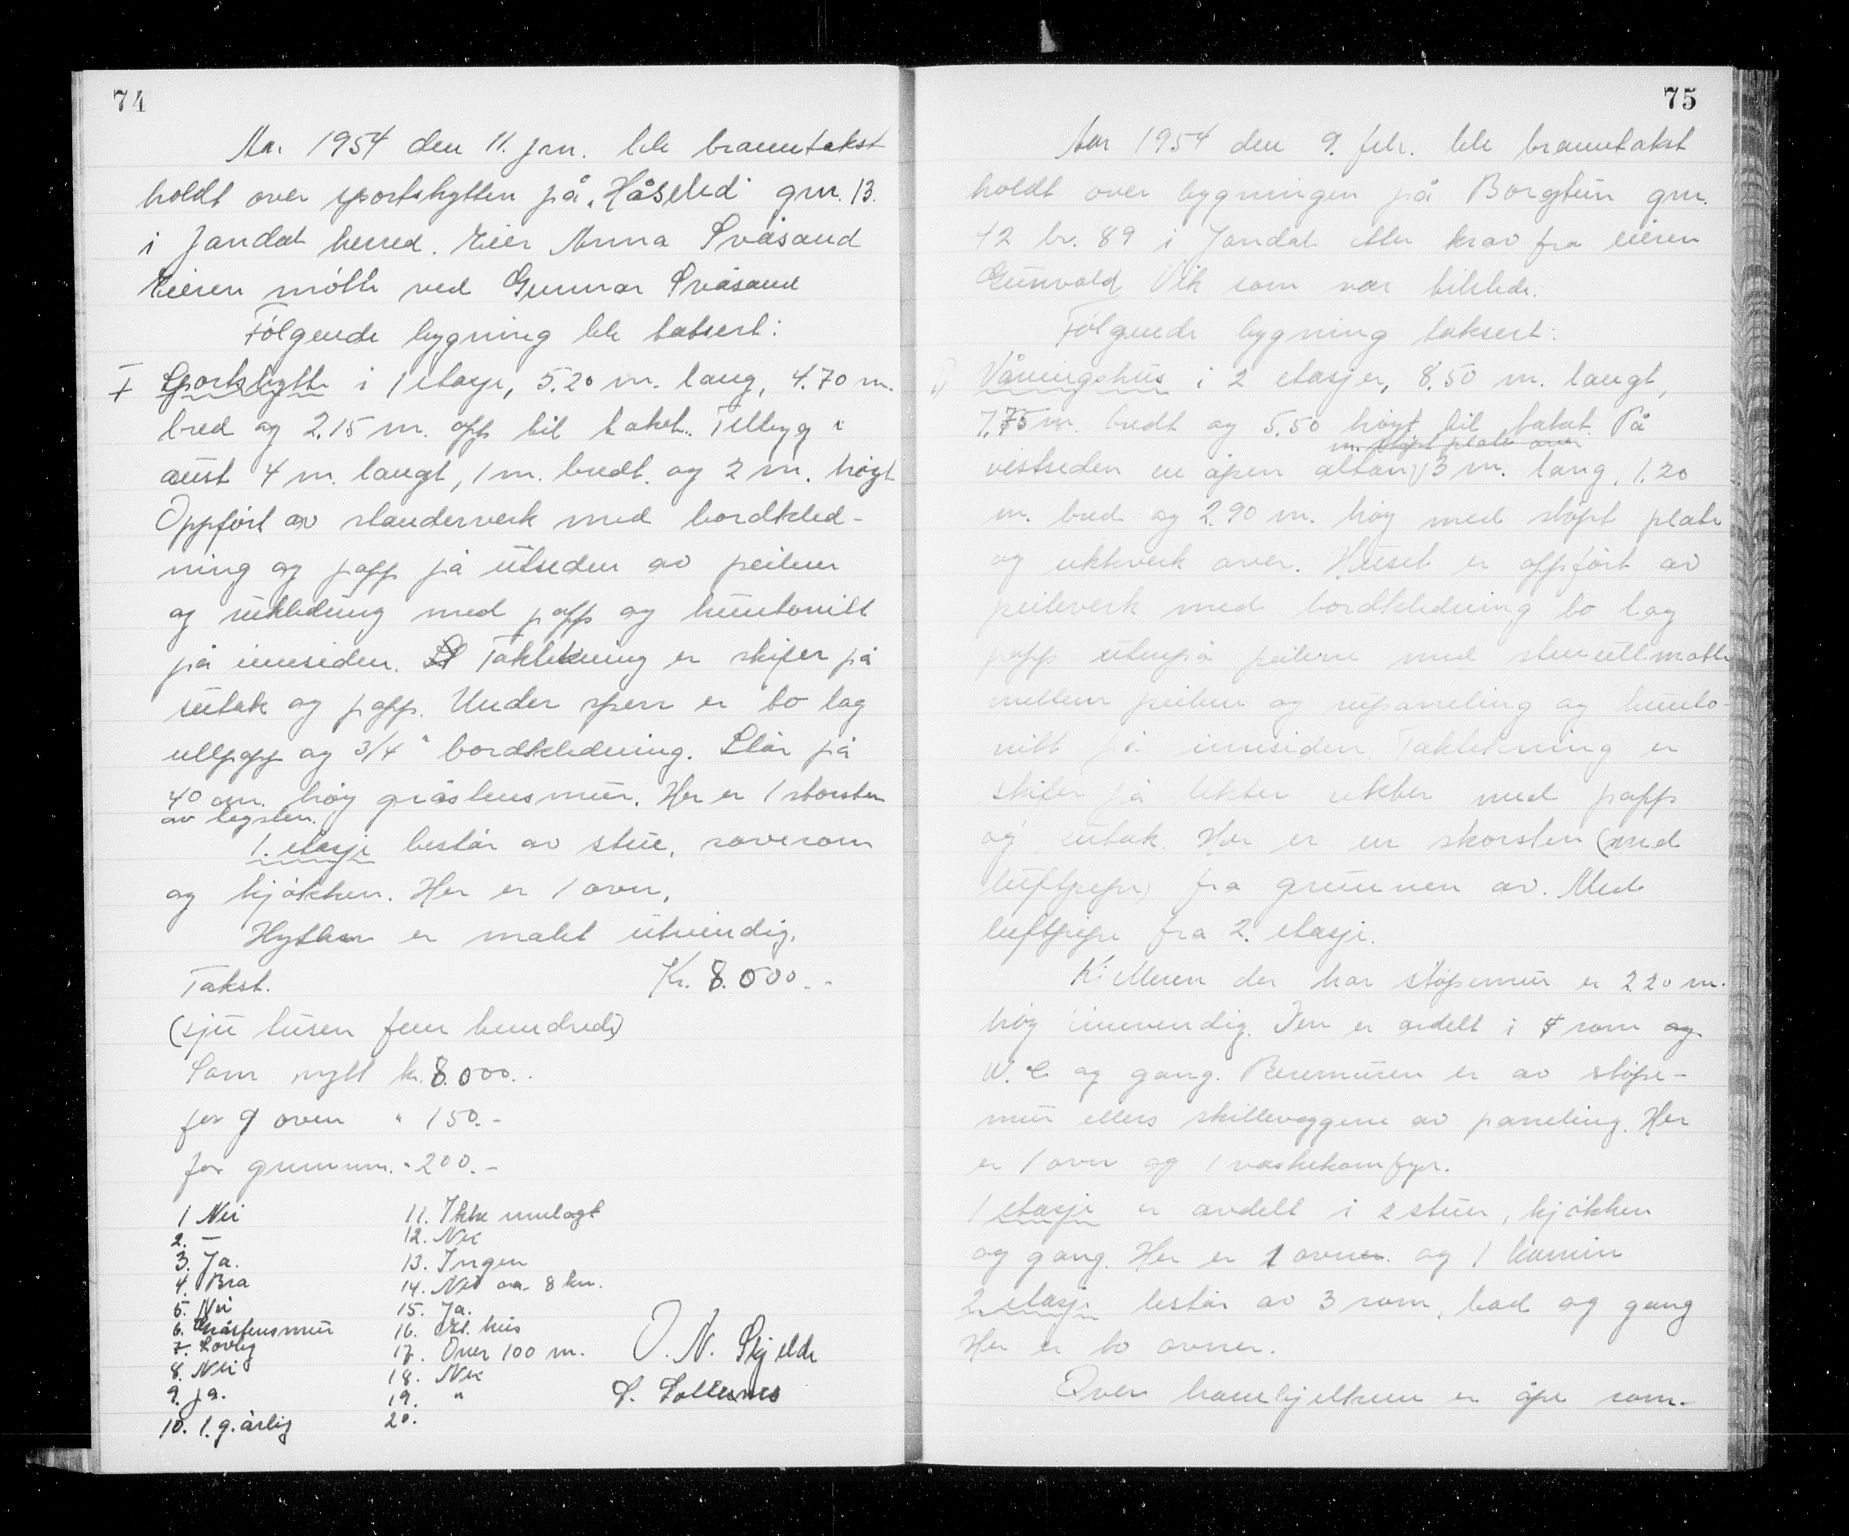 74
Aar 1954 den 11. jan. ble branntakst
holdt over sportshytten på "Håseled" gnr. 13.
i Jondal herred. Eier Anna Svåsand
Eieren møtte ved Gunnar Svåsand
Følgende bygning ble taksert:
I Sportshytte i 1 etasje, 5.20 m. lang, 4.70 m.
bred og 2.15 m. opp til taket. Tilbygg i
aust 4 m. langt, 1 m. bredt og 2 m. høgt
Oppført av standerverk med bordkled-
ning og papp på utsiden av peilene
og rukledning med papp og huntonitt
på innsiden. Taktekning er skifer på
sutak og papp. Under sperr er to lag
ullpapp og 3/4" bordkledning. Står på
40 cm. høg gråstensmur. Her er 1 skorsten
av tegsten.
1. etasje består av stue, soverom
og kjøkken. Her er 1 ovn.
Hytten er malt utvendig.
Takst. Kr. 8.000.-
(sju tusen fem hundrede)
Som nytt kr. 8.000.-
for 1 oven " 150.-
for grunnm. " 200.-
1 Nei
2. —
3. Ja.
4. Bra
5. Nei
6. Gråstensmur
7. Lovlig
8. Nei
9. Ja.
10. 1. g. årlig
11. Ikke innlagt
12. Nei
13. Ingen
14. Nei ca. 8 km.
15. Ja.
16. hus
17. Over 100 m.
18. Nei
19. "
20.
O. N. Skjelde
S. Sollesnes
75
Aar 1954 den 9. febr. ble branntakst
holdt over bygningen på Borgtun gnr.
42 br. 89 i Jondal etter krav fra eieren
Gunvald Vik som var tilstede.
Følgende bygning taksert:
1) Våningshus i 2 etasjer, 8.50 m. langt,
7.75 m. bredt og 5.50 høgt til taket. På
m. støpt plate over
vestsiden en åpen altan 3 m. lang, 1.20
m. bred og 2.90 m. høg med støpt plate
og rekkverk over. Huset er oppført av
peileverk med bordkledning to lag
papp utenpå peilene med stenullmatte
mellem peilene og rupaneling og hunto-
nitt på innsiden. Taktekning er
skifer på lekter rekter med papp
og sutak. Her er en skorsten (med
luftpipe) fra grunnen av. Med
luftpipe fra 2. etasje.
Kjelleren der har støpemur er 2.20 m.
høg innvendig. Den er avdelt i 4 rom og
W.C. og gang. Bæremuren er av støpe-
mur ellers skilleveggene av paneling. Her
er 1 ovn og 1 vaskekomfyr.
1 etasje er avdelt i 2 stuer, kjøkken
og gang. Her er 1 ovner og 1 kamin
2 etasje består av 3 rom, bad og gang
Her er to ovner.
Over hanebjelkene er åpe rom.